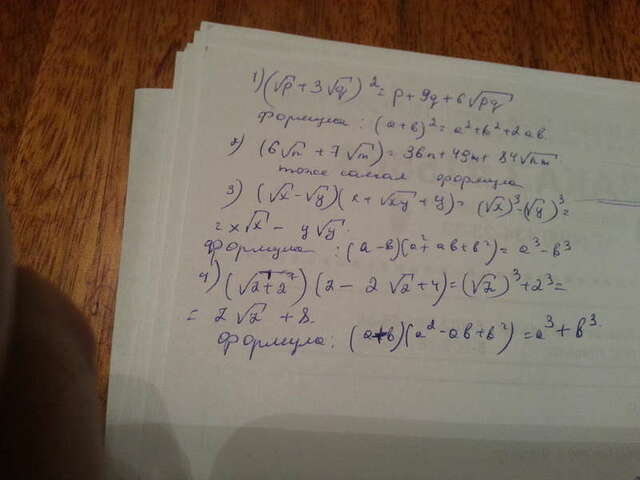 1) (√p + 3√q)² = p + 9q + 6√pq
формула : (a+b)² = a² + b² + 2ab
2) (6√n + 7√m) = 36n + 49m + 84√nm
тоже самая формула
3) (√x - √y)(x + √xy + y) = (√x)³ - (√y)³ =
= x√x - y√y.
формула : (a-b)(a² + ab + b²) = a³ - b³
4) (√2+2)(2 - 2√2 + 4) = (√2)³ + 2³ =
= 2√2 + 8.
формула : (a+b)(a² - ab + b²) = a³ + b³.